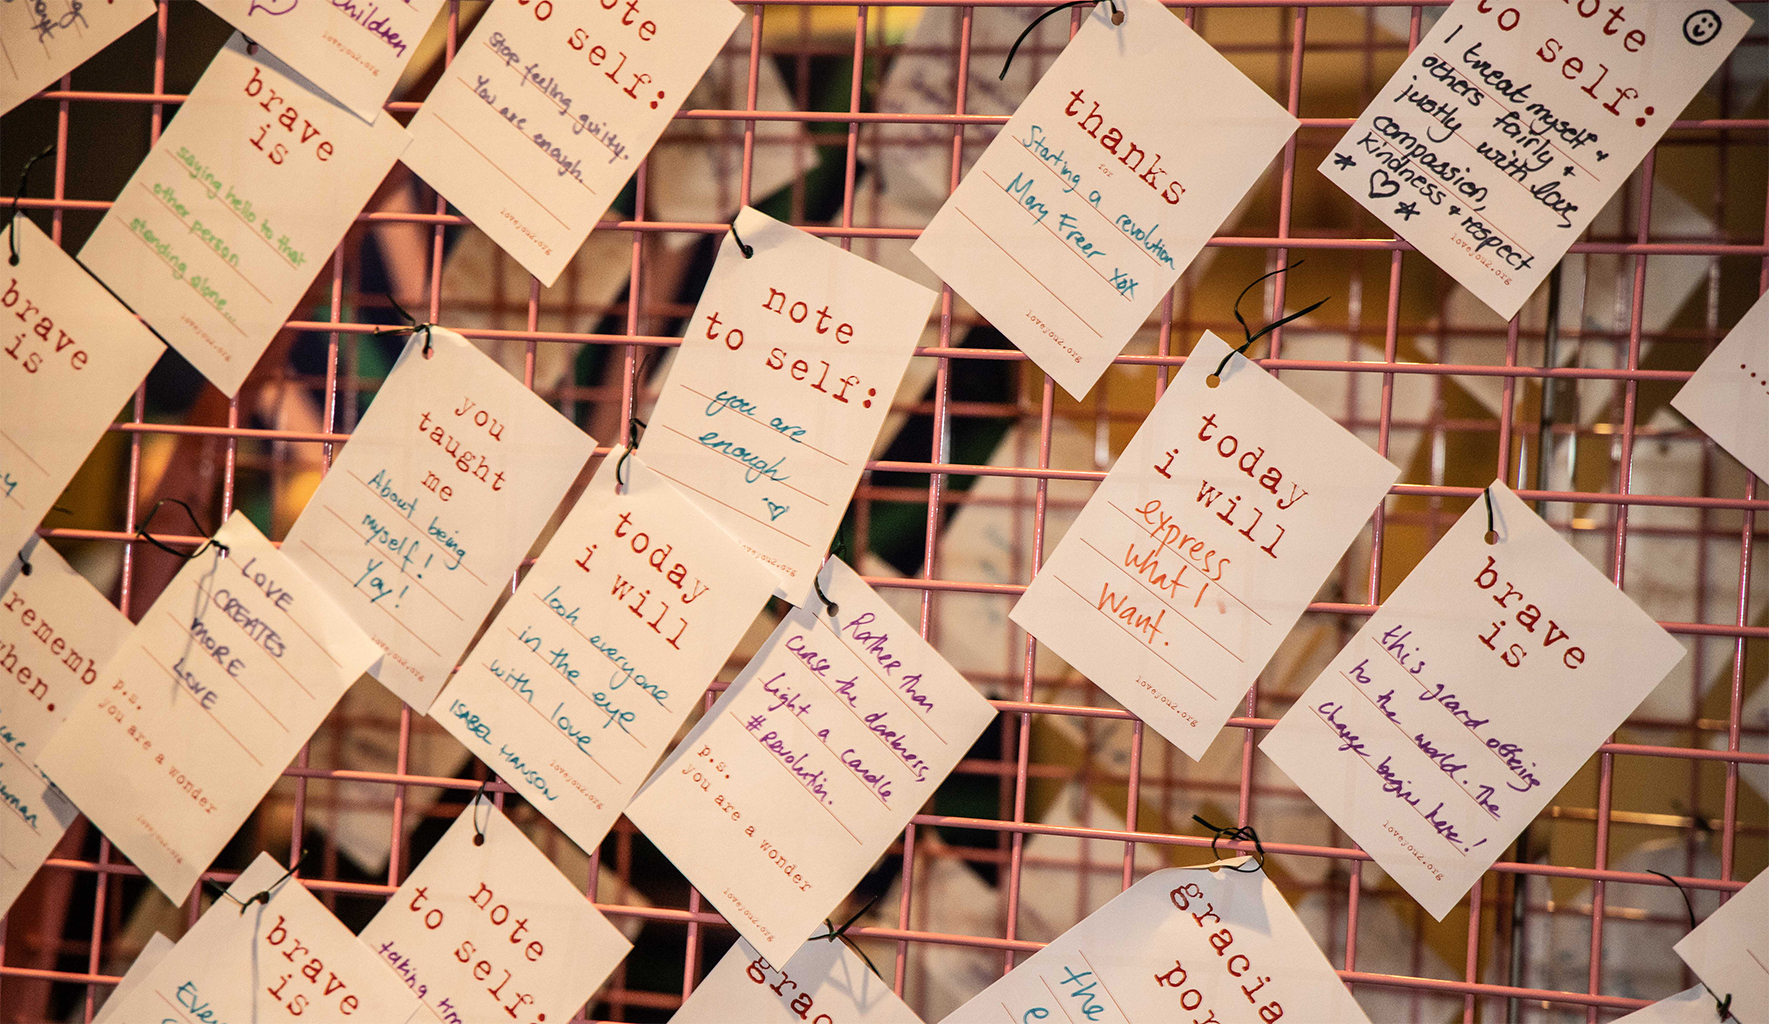 children
loveyou2.org
note
to self:
Stop feeling guilty.
You are enough.
loveyou2.org
brave
is
saying hello to that
other person
standing alone...
loveyou2.org
thanks
for
Starting a revolution
Mary Freer xox
loveyou2.org
note
to self:
I treat myself +
others fairly +
justly with love,
compassion,
kindness + respect
loveyou2.org
brave
is
you
taught
me
About being
myself!
Yay!
loveyou2.org
note
to self:
you are
enough
loveyou2.org
today
i will
express
what I
want.
loveyou2.org
brave
is
this grand offering
to the world. The
change begins here!
loveyou2.org
rememb
when.
LOVE
CREATES
MORE
LOVE
p.s.
you are a wonder
loveyou2.org
today
i will
look everyone
in the eye
with love
ISABEL HANSON
loveyou2.org
Rather than
curse the darkness,
light a candle
#Revolution.
p.s.
you are a wonder
loveyou2.org
brave
is
note
to self:
taking tim
grac
gracia
por
the